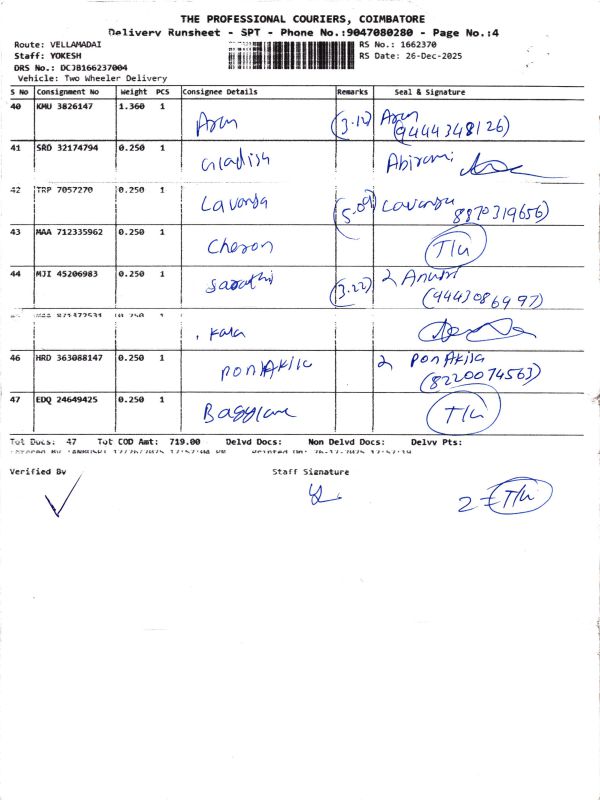 THE PROFESSIONAL COURIERS, COIMBATORE
Delivery Runsheet - SPT - Phone No.:9047080280 - Page No.:4
Route: VELLAMADAI RS No.: 1662370
Staff: YOKESH RS Date: 26-Dec-2025
DRS No.: DCJB166237004
Vehicle: Two Wheeler Delivery
S No Consignment No Weight PCS Consignee Details Remarks Seal & Signature
40 KMU 3826147 1.360 1 Arun (3.12) Arun
(9444348126)
41 SRD 32174794 0.250 1 Gladish Abirami
42 TRP 7057270 0.250 1 Lavanya (5.09) Lavanya
8870319656)
43 MAA 712335962 0.250 1 Cheron
44 MJI 45206983 0.250 1 Sarathi (3.22) 2
(9443086997)
45 MAA 871372531 0.250 1 Kala
46 HRD 363088147 0.250 1 PonAkila 2 PonAkila
(8220074563)
47 EDQ 24649425 0.250 1
Tot Docs: 47 Tot COD Amt: 719.00 Delvd Docs: Non Delvd Docs: Delvv Pts:
Verified By Staff Signature
2 =